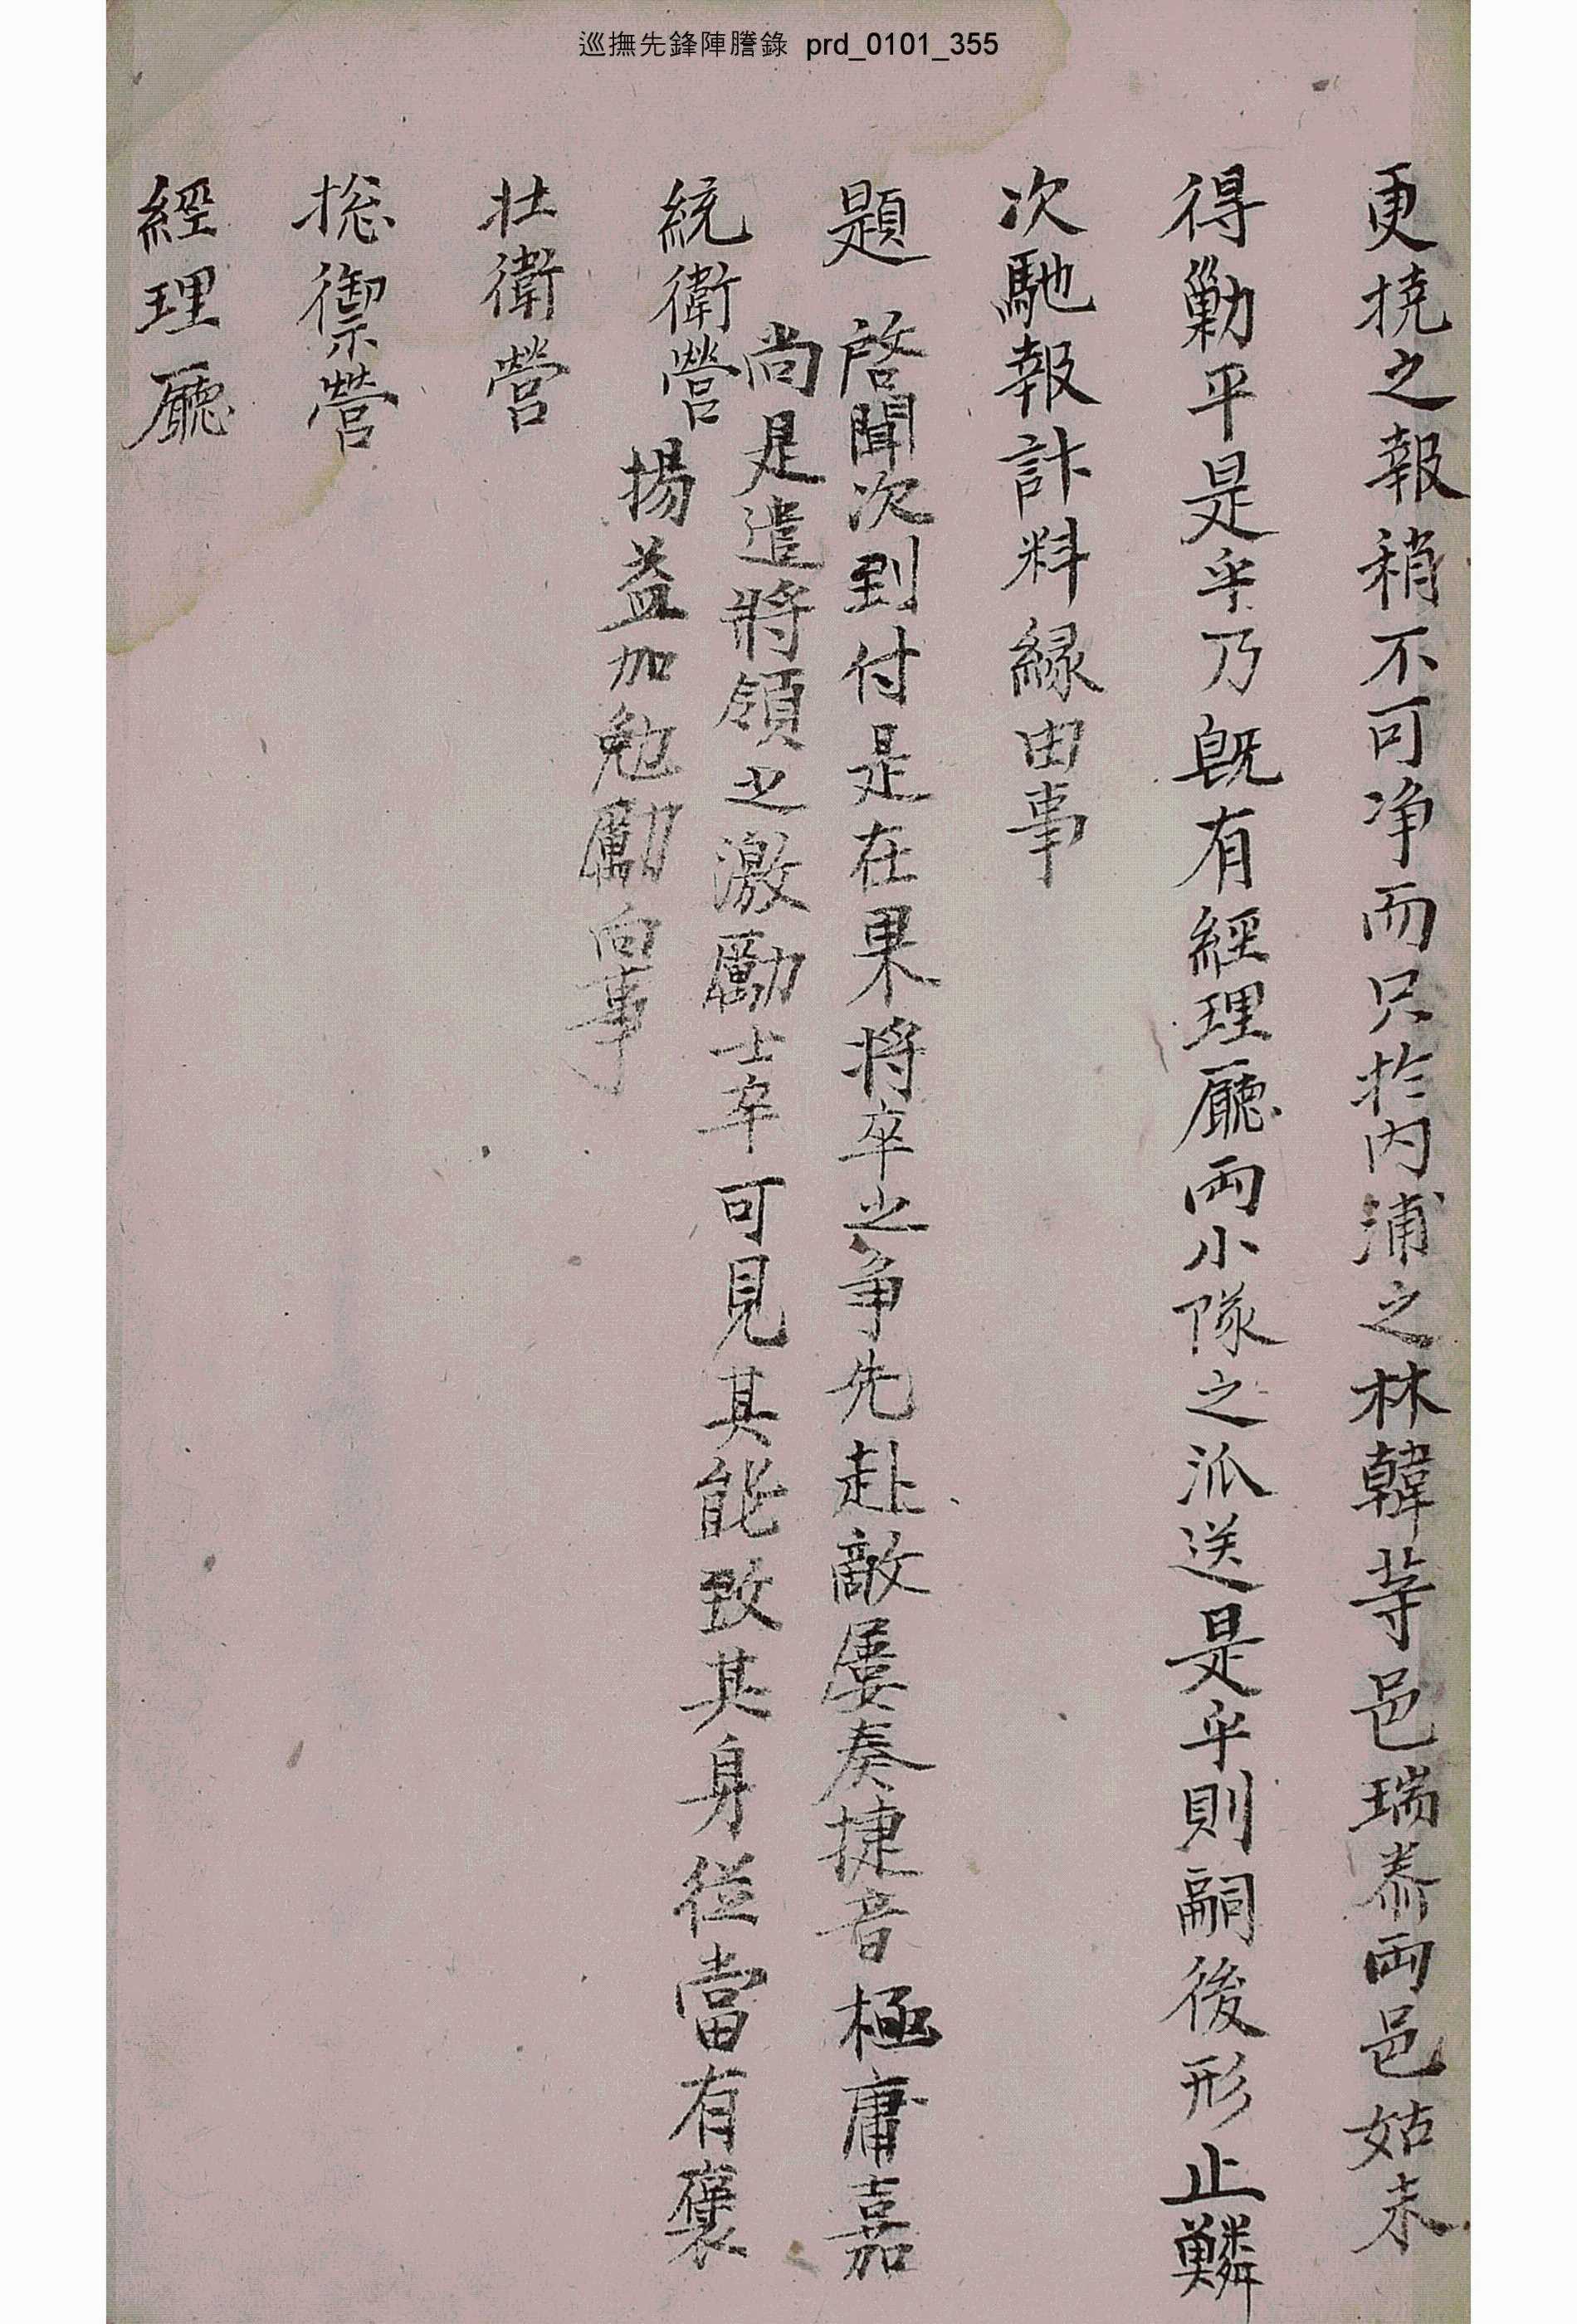 巡撫先鋒陣謄錄 prd_0101_355
更撓之報稍不可净而只扵内浦之林韓等邑瑞泰両邑姑未
得勦平是乎乃旣有經理廳両小隊之派送是乎則嗣後形止鱗
次馳報計料緣由事
題 啓聞次到付是在果將卒之争先赴敵屡奏捷音極庸嘉
尚是遣將領之激勵士卒可見其能致其身從當有褒
揚益加勉勵向事
統衛營
壯衛營
捴禦營
經理廳